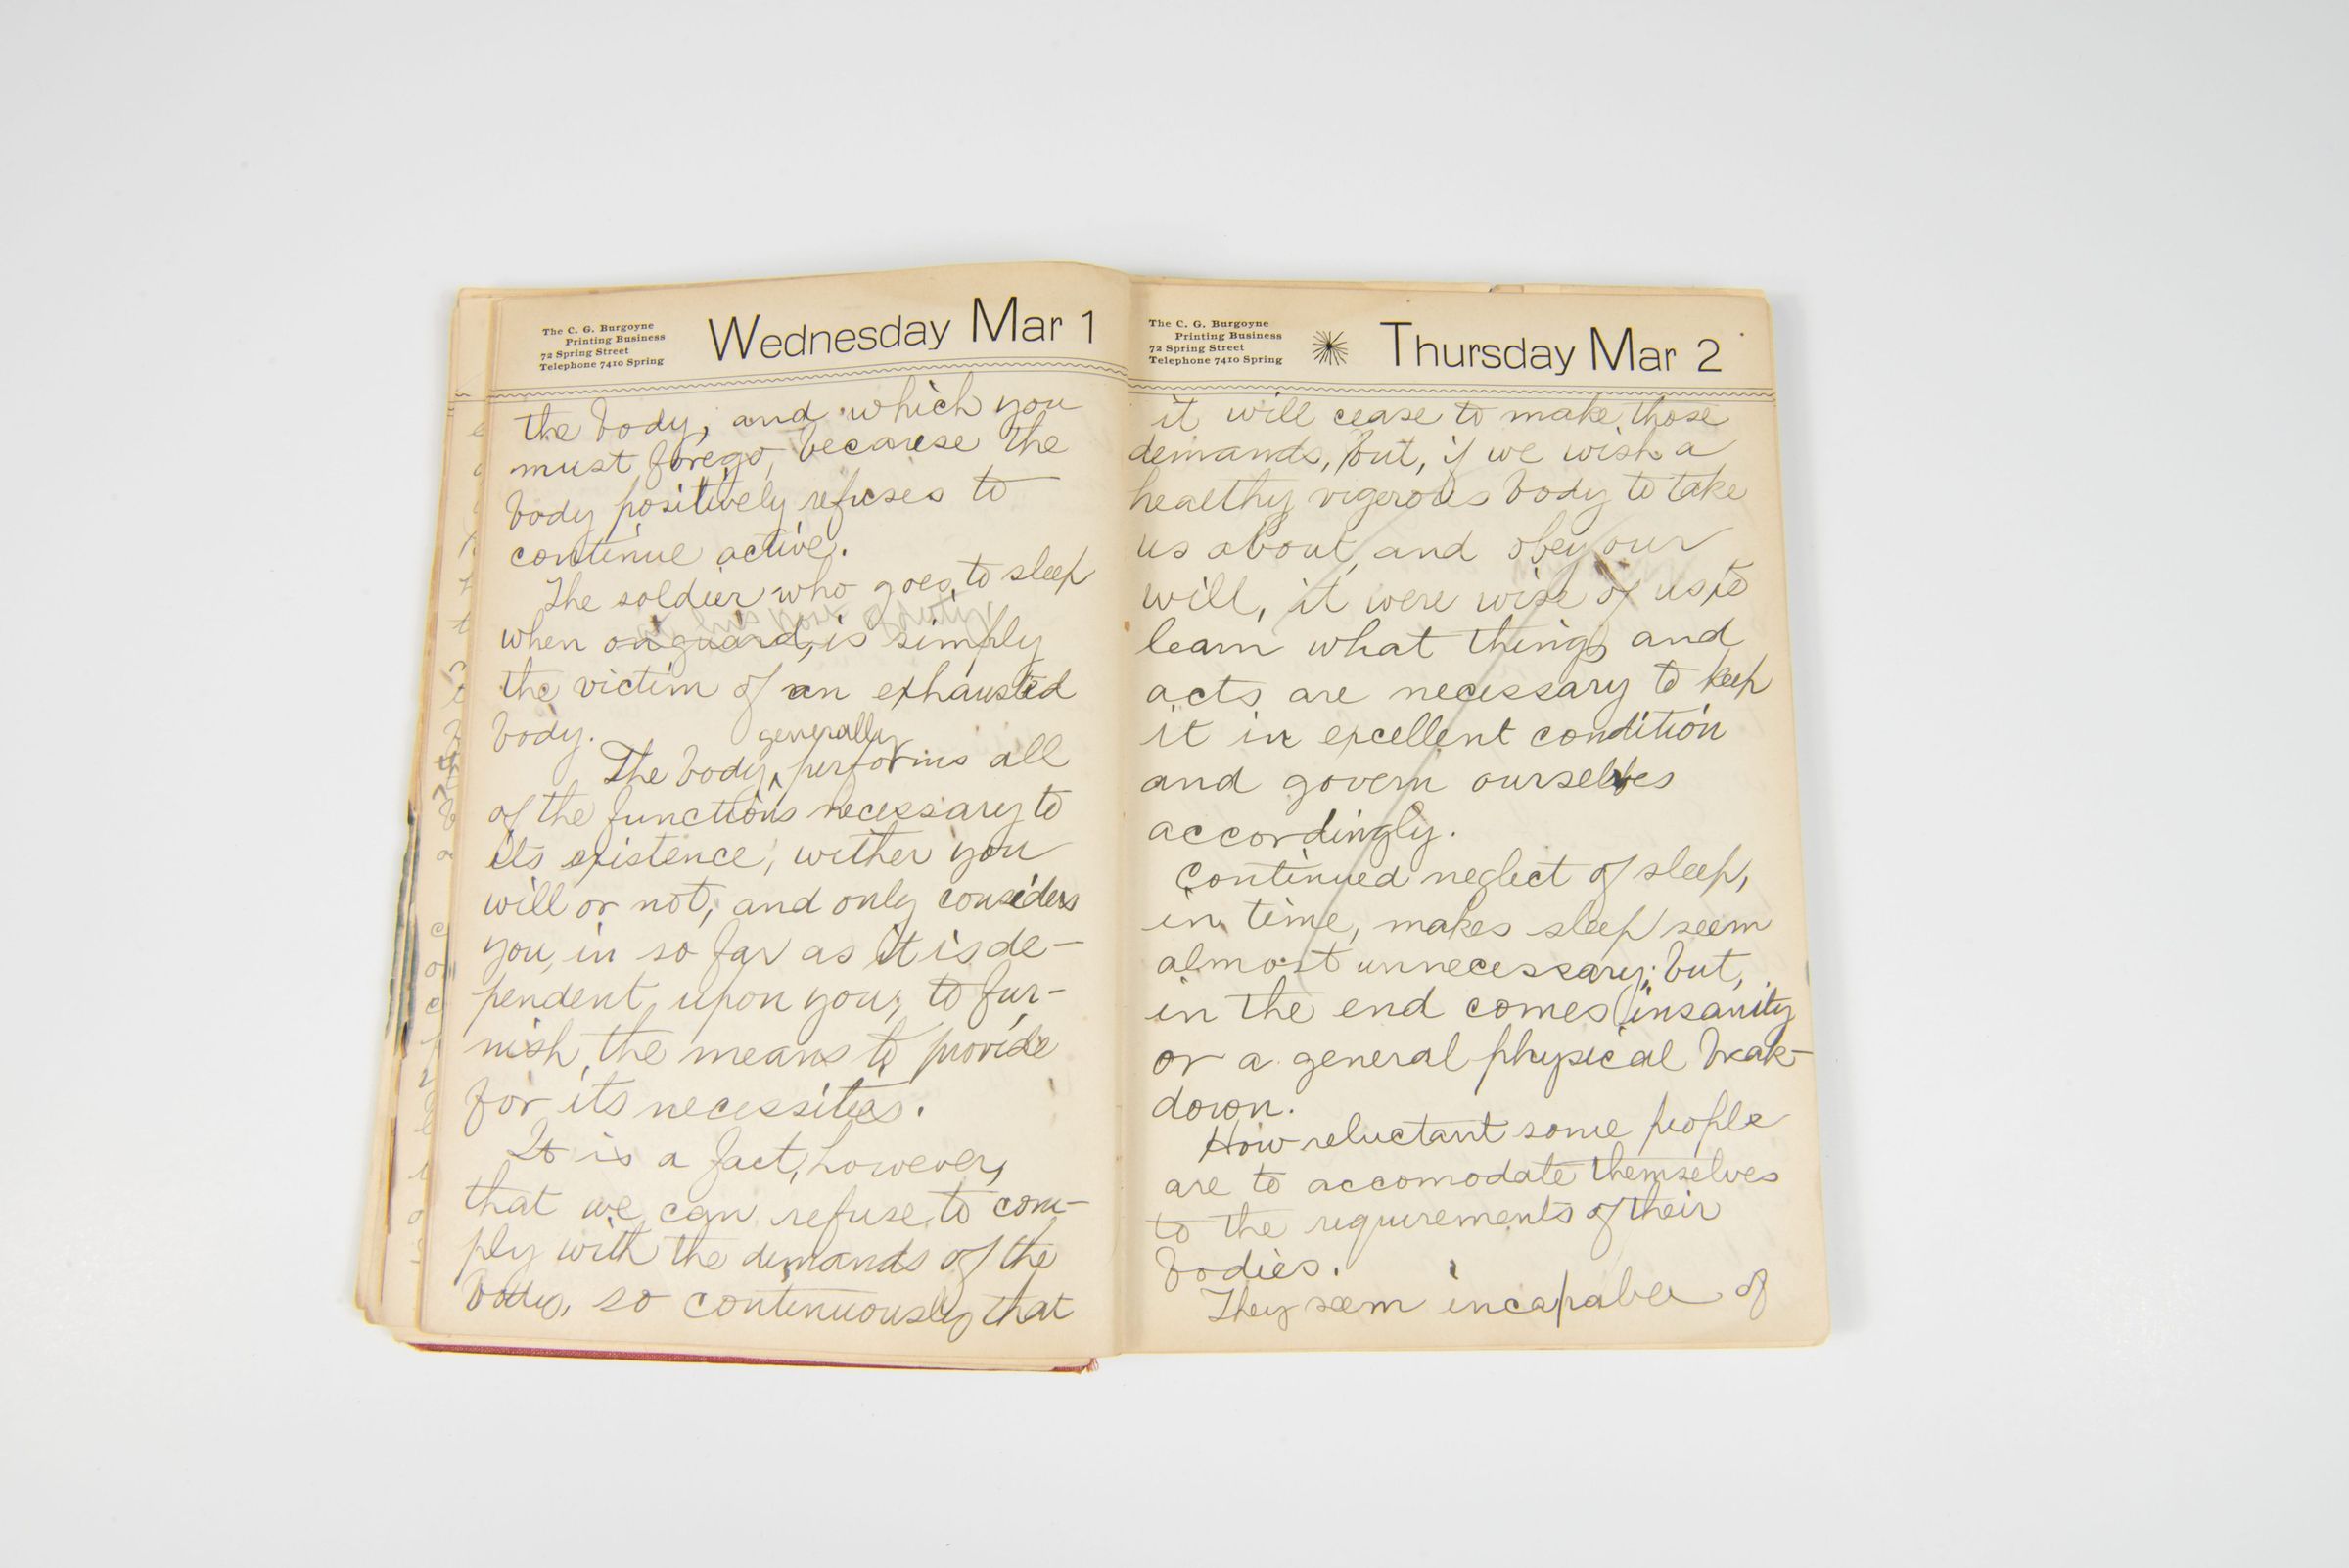 The C. G. Burgoyne
Printing Business
72 Spring Street
Telephone 7410 Spring
Wednesday Mar 1
the body, and which you
must forego, because the
body positively refuses to
continue active.
The soldier who goes to sleep
when on guard, is simply
the victim of an exhausted
body.
generally
The body, performs all
of the functions necessary to
its existence, wither you
will or not, and only considers
you, in so far as it is de-
pendent, upon you, to fur-
nish, the means to provide
for its necessities.
It is a fact, however,
that we can refuse to com-
ply with the demands of the
body, so continuously that
The C. G. Burgoyne
Printing Business
72 Spring Street
Telephone 7410 Spring
Thursday Mar 2
it will cease to make those
demands, but, if we wish a
healthy vigerous body to take
us about, and obey our
will, it were wise of us to
learn what things and
acts are necessary to keep
it in excellent condition
and govern ourselves
accordingly.
Continued neglect of sleep,
in time, makes sleep seem
almost unnecessary; but,
in the end comes insanity
or a general physical break-
down.
How reluctant some people
are to accomodate themselves
to the requirements of their
bodies.
They seem incapable of